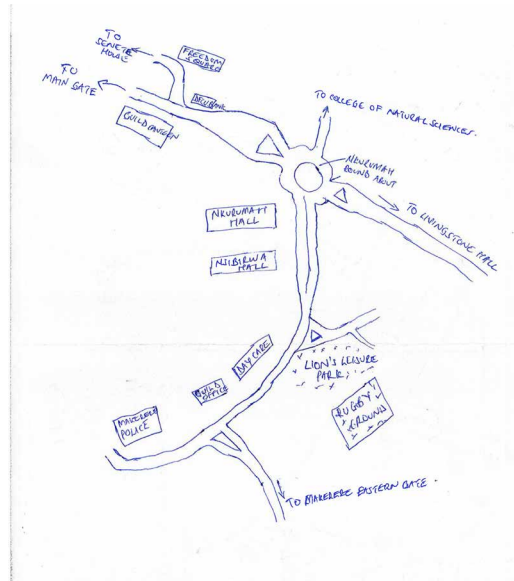 TO
SENETE
HOUSE
FREEDOM
SQUARE
TO
MAIN GATE
DFCU BANK
GUILD CANTEEN
TO COLLEGE OF NATURAL SCIENCES.
NKURUMAH
ROUND ABOUT
TO LIVINGSTONE HALL
NKURUMAH
HALL
NJIBIRWA
HALL
DAY CARE
LION'S LEISURE
PARK
GUILD
OFFICE
RUGBY
GROUND
MAKERERE
POLICE
TO MAKERERE EASTERN GATE.